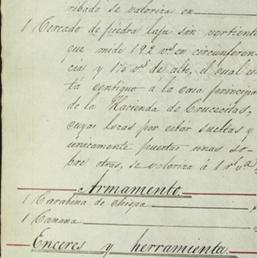 ribado se valoriza en
1 Cercado de piedra laja sin vertiente
que mide 192 vs en circunferen-
cia y 1½ vs de alto, el cual es-
tá contiguo a la casa principal
de la Hacienda de Crucecitas,
cuyas lozas por estar sueltas y
unicamente puestas unas so-
bre otras, se valoriza á 1 rl va
Armamento.
1 Carabina de chispa
1 Canana
Enceres y herramienta.